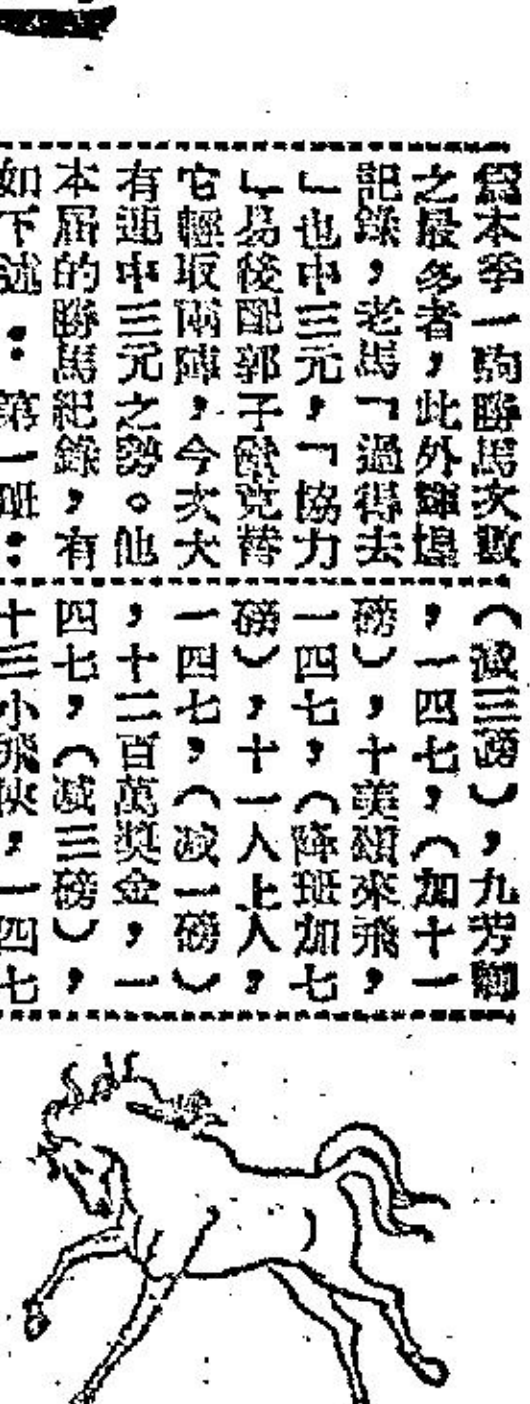 為本季一駒勝馬次數
之最多者，此外輝煌
記錄，老馬「過得去
」也中三元，「協力
」易後配郭子猷竟替
它輕取兩陣，今次大
有連中三元之勢。他
本屆的勝馬紀錄，有
如下述：第一班：
（減三磅），九芳
，一四七，（加十一
磅），十美頌來飛，
一四七，（降班加七
磅），十一人上人，
一四七，（減一磅）
，十二百萬獎金，一
四七，（減三磅），
十三小飛俠，一四七